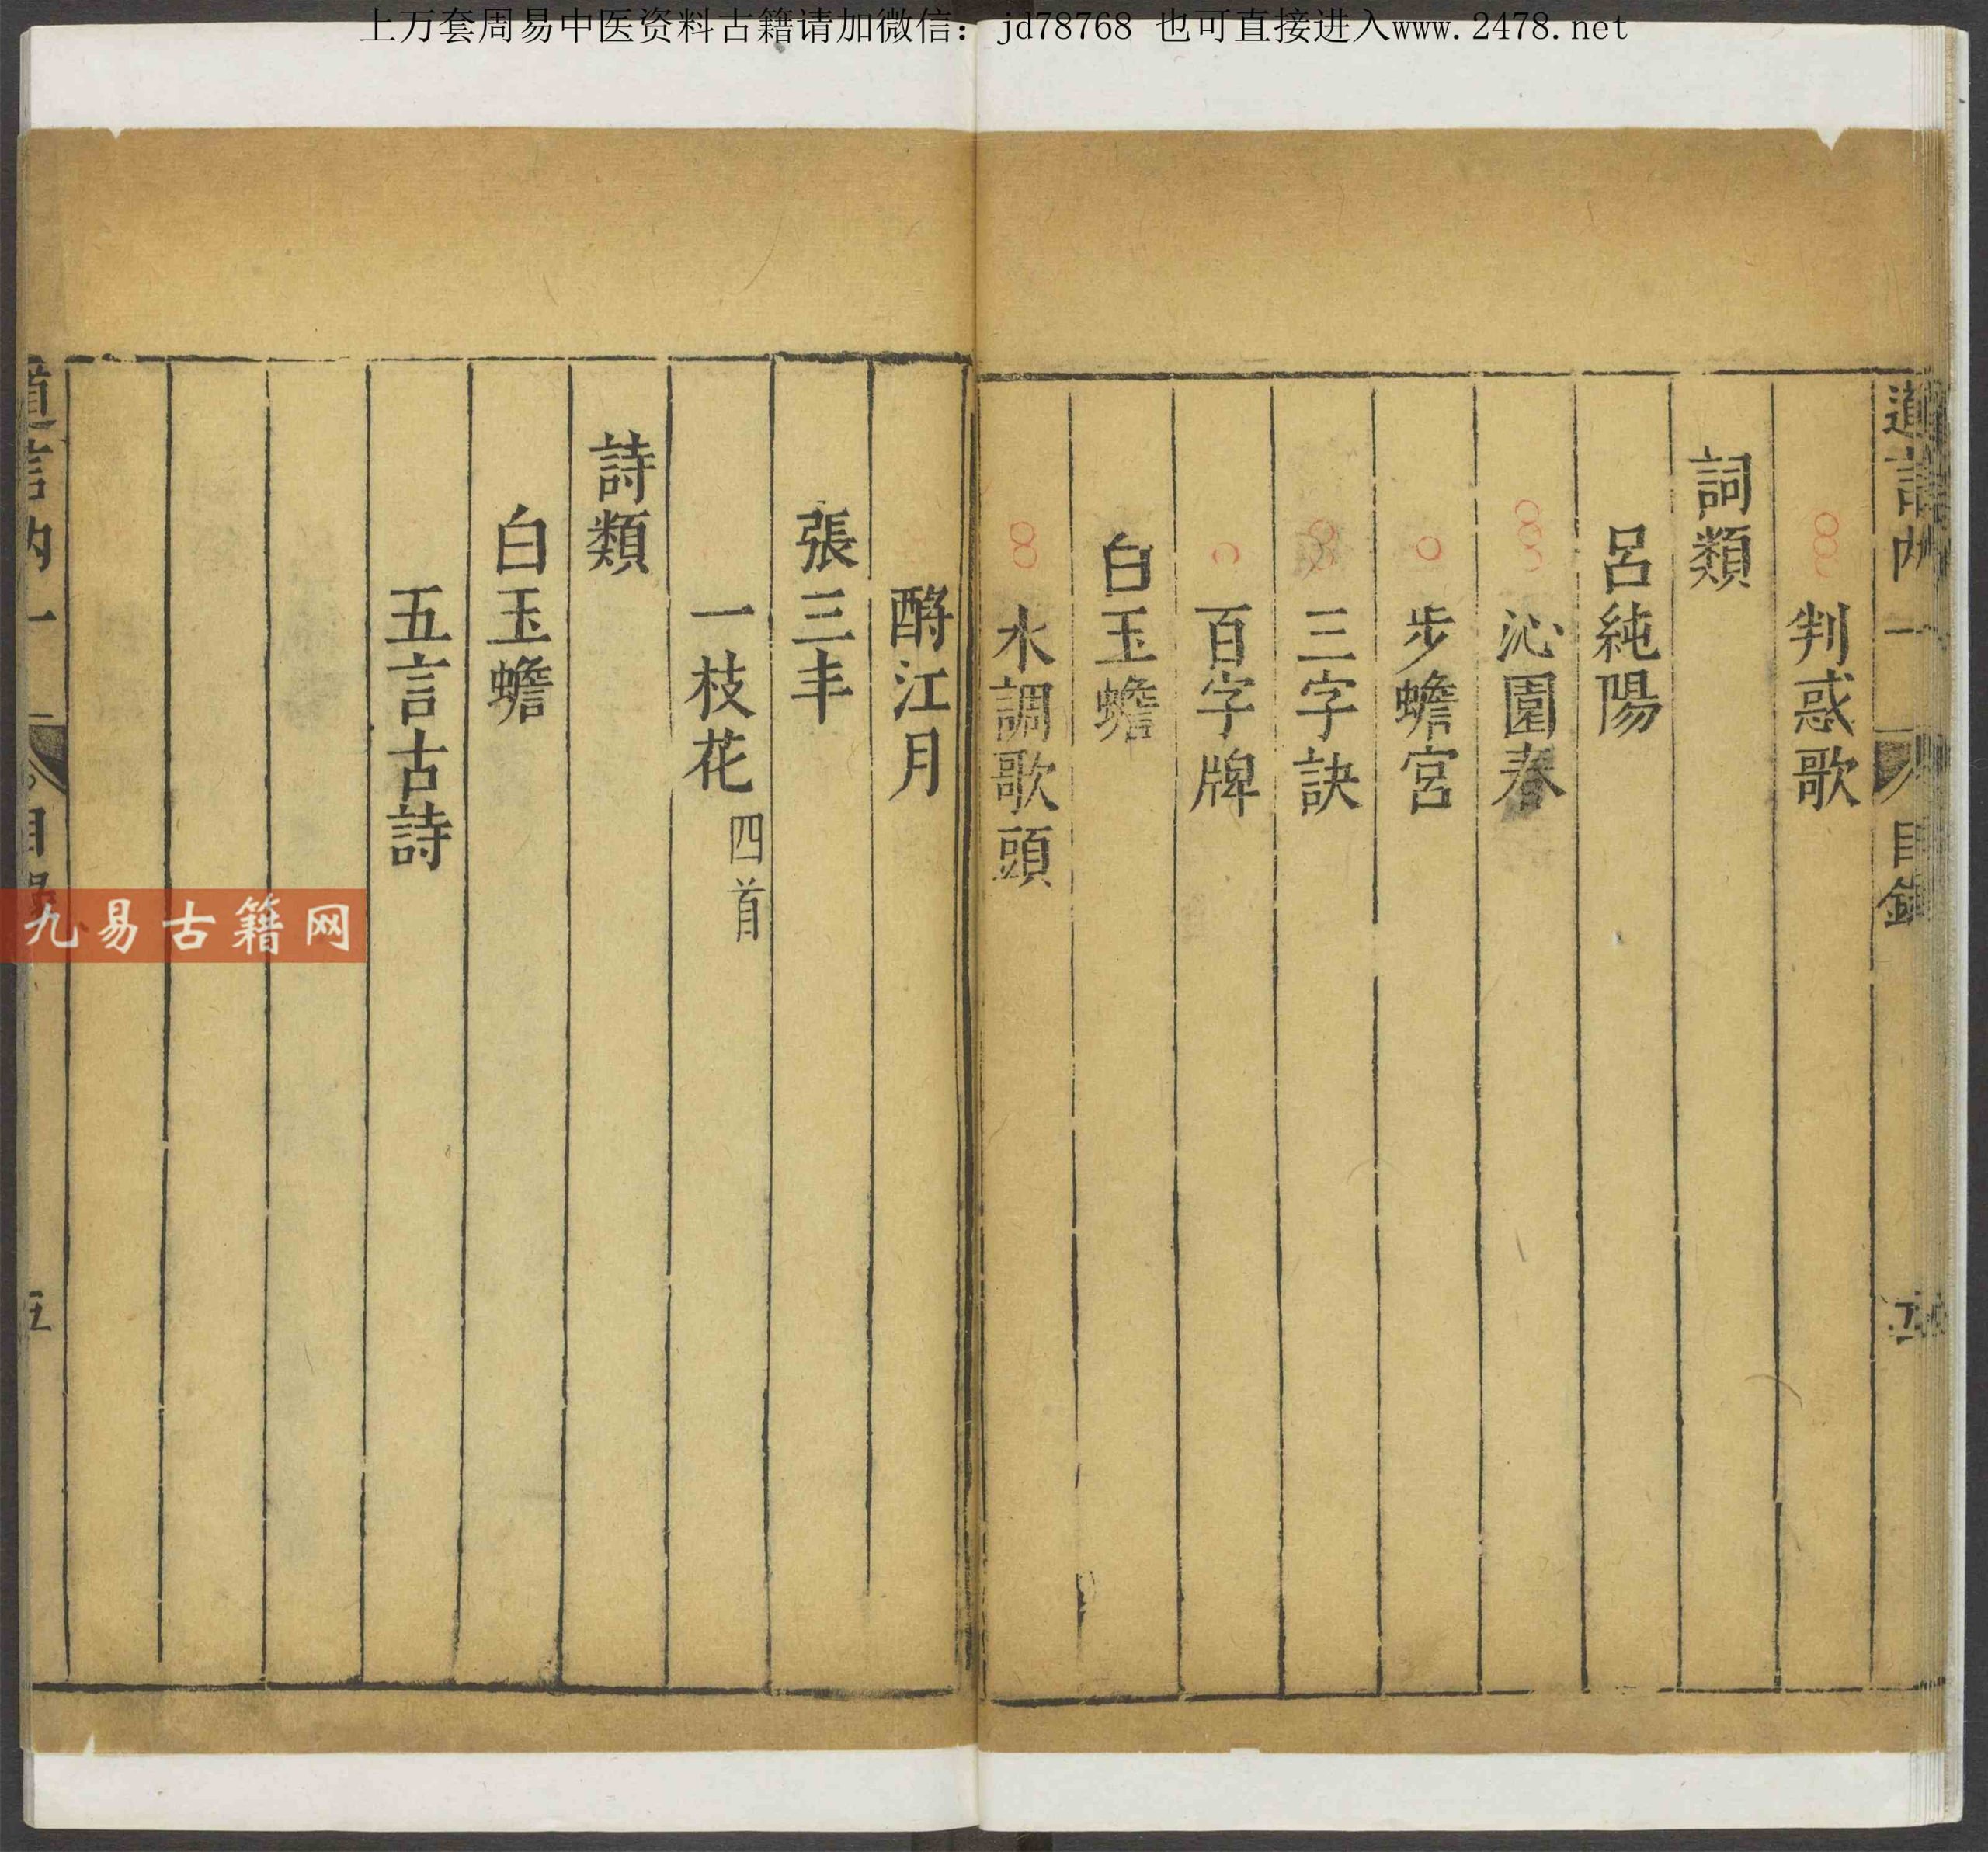 上万套周易中医资料古籍请加微信：jd78768 也可直接进入www.2478.net
判惑歌
詞類
呂純陽
沁園春
步蟾宮
三字訣
百字牌
白玉蟾
水調歌頭
酹江月
張三丰
一枝花四首
詩類
白玉蟾
五言古詩
道言內一
目錄
五
九易古籍网